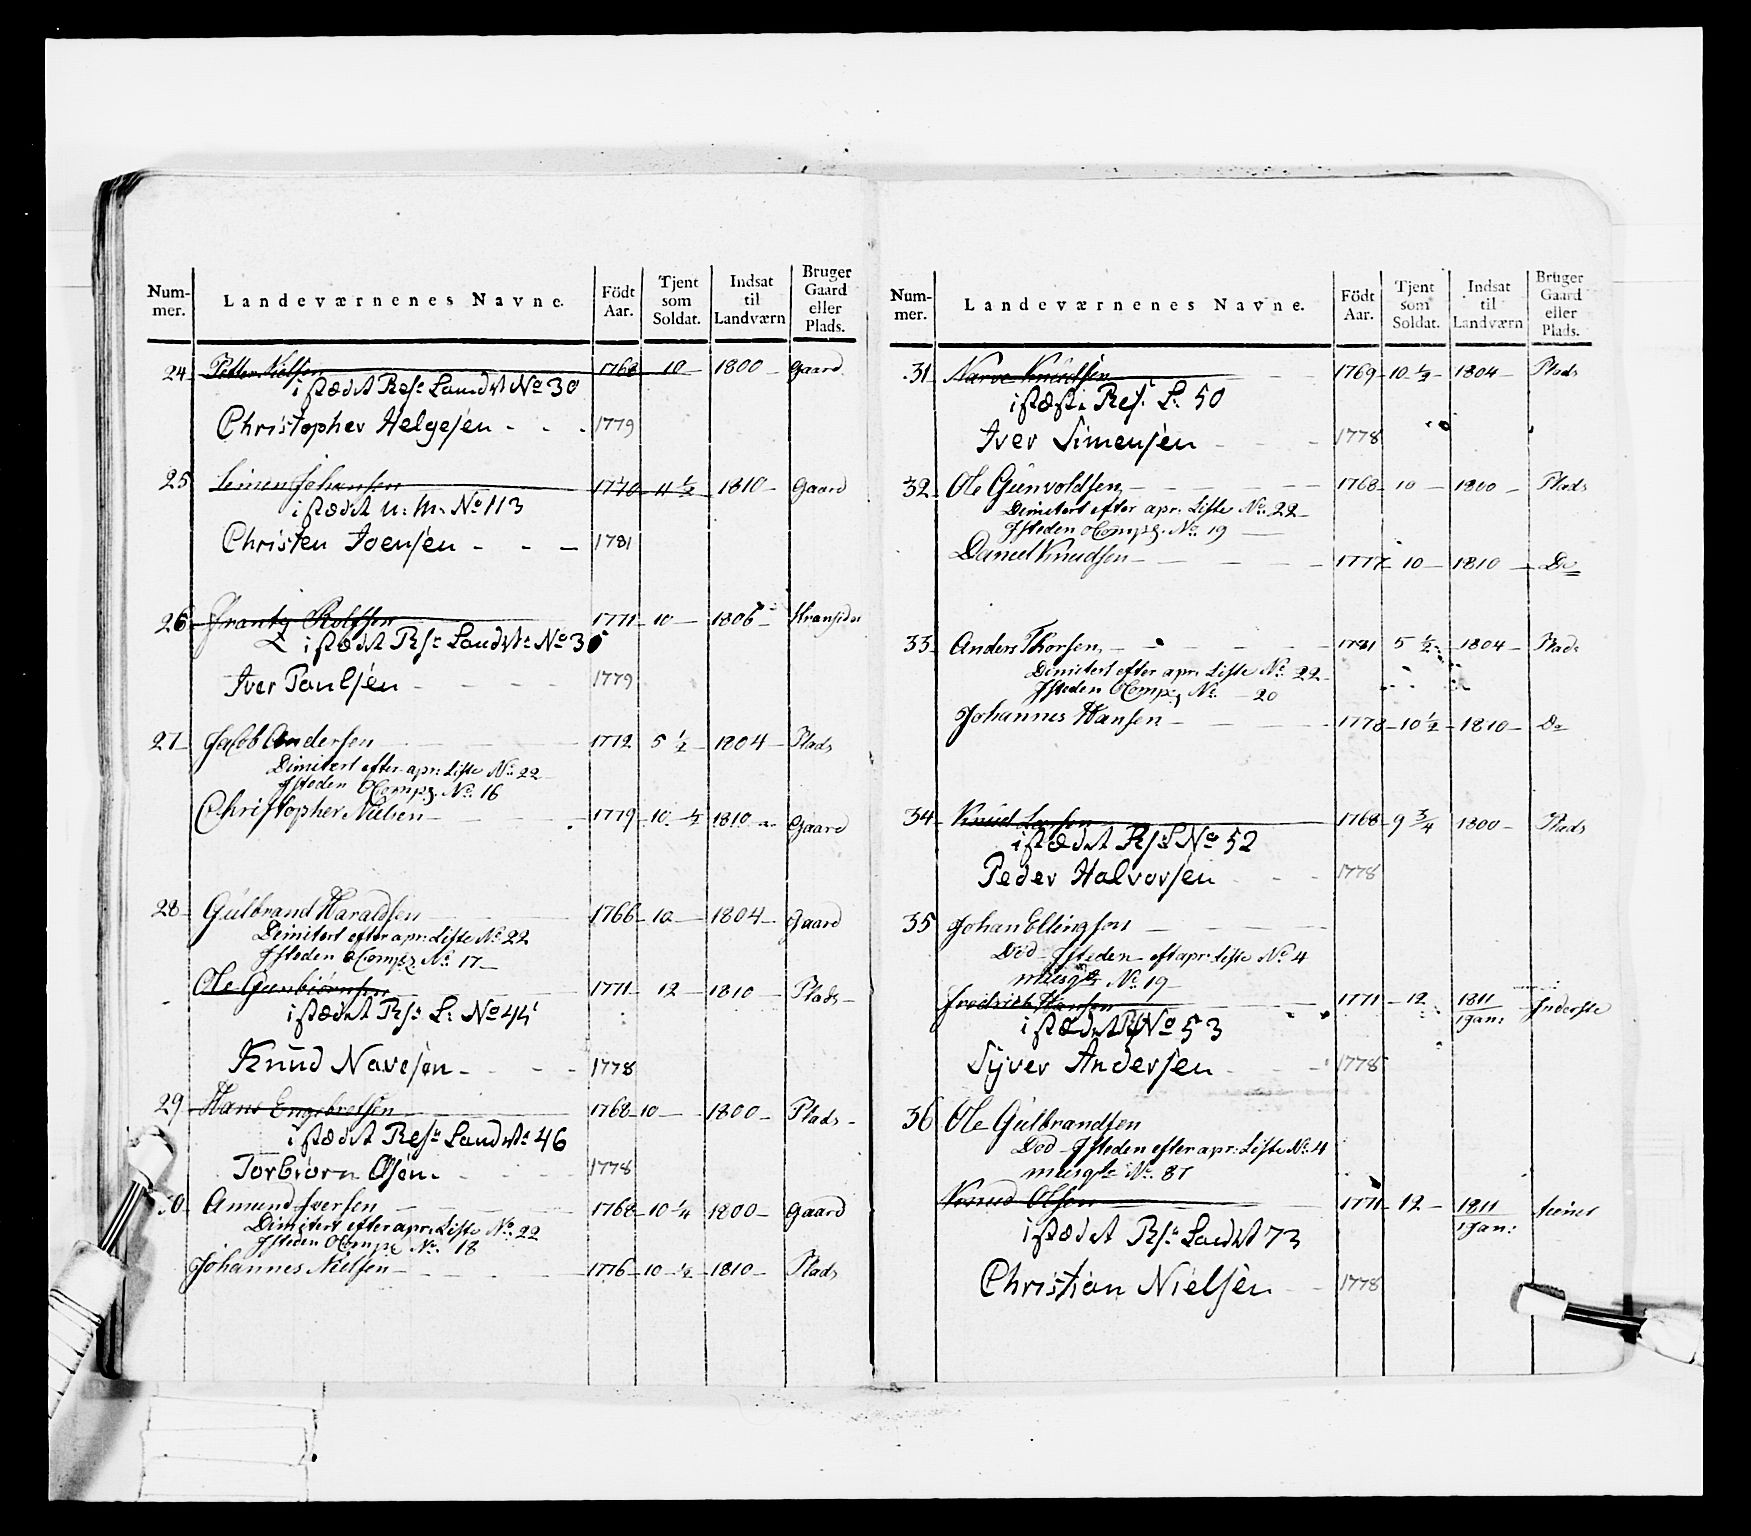 Num-
mer.
Landeværnenes Navne.
Födt
Aar.
Tjent
som
Soldat.
Indsat
til
Landværn
Bruger
Gaard
eller
Plads.
24 Petter Nielsen 1768 10 1800 Gaard
istædet Resc Landvt No 30
Christopher Helgesen 1779
25 Simen Johansen 1770 11 1/2 1810 Gaard
istædet u: m: No 113
Christen Joensen 1781
26 Frantz Rolfsen 1771 10 1806
istædet Rsc Landvt No 35
Iver Paulsen 1779
27 Jacob Andersen 1772 5 1/2 1804 Plads
Dimitert efter apr: Liste No 22
Isteden Comp: No 16
Christopher Nielsen 1779 10 1/2 1810 Gaard
28 Gulbrand Haraldsen 1766 10 1804 Gaard
Dimitert efter apr: Liste No 22
Isteden Comp: No 17
Ole Gunbiörnsen 1771 12 1810 Plads
istædet Rsc L: No 44
Knud Navesen 1778
29 Hans Engebretsen 1768 10 1800 Plads
istædet Resc Landvt 46
Torbiørn Olsen 1778
30 Amund Iversen 1768 10 1/4 1800 Gaard
Dimitert efter apr: Liste No 22
Isteden Comp: No 18
Johannes Nielsen 1776 10 1/2 1810 Plads
Num-
mer.
Landeværnenes Navne.
Födt
Aar.
Tjent
som
Soldat.
Indsat
til
Landværn
Bruger
Gaard
eller
Plads.
31 Narve Knudsen 1769 10 1/2 1804 Plads
Res: L: 50
Iver Simensen 1778
32 Ole Gunvoldsen 1768 10 1800 Plads
Dimitert efter apr: Liste No 22
Isteden Comp: No 19
Daniel Knudsen 1777 10 1810 Do
33 Anders Thorsen 1771 5 1/2 1804 Plads
Dimitert efter apr: Liste No 22
Isteden Comp: No 20
Johannes Hansen 1778 10 1/2 1810 Do
34 Knud Larsen 1768 9 3/4 1800 Plads
istædet Rsc L No 52
Peder Halvorsen 1778
35 Johan Ellingsen
Död Isteden eft apr: Liste No 4
musqt No 19
Fredrich Hansen 1771 12 1811 Inderste
1 Jan:
istædet No 53
Syver Andersen 1778
36 Ole Gulbrandsen
Död Isteden efter apr: Liste No 4
musqt No 87
Knud Olsen 1771 12 1811
1 Jan:
istædet Rsc Landvt 73
Christian Nielsen 1778